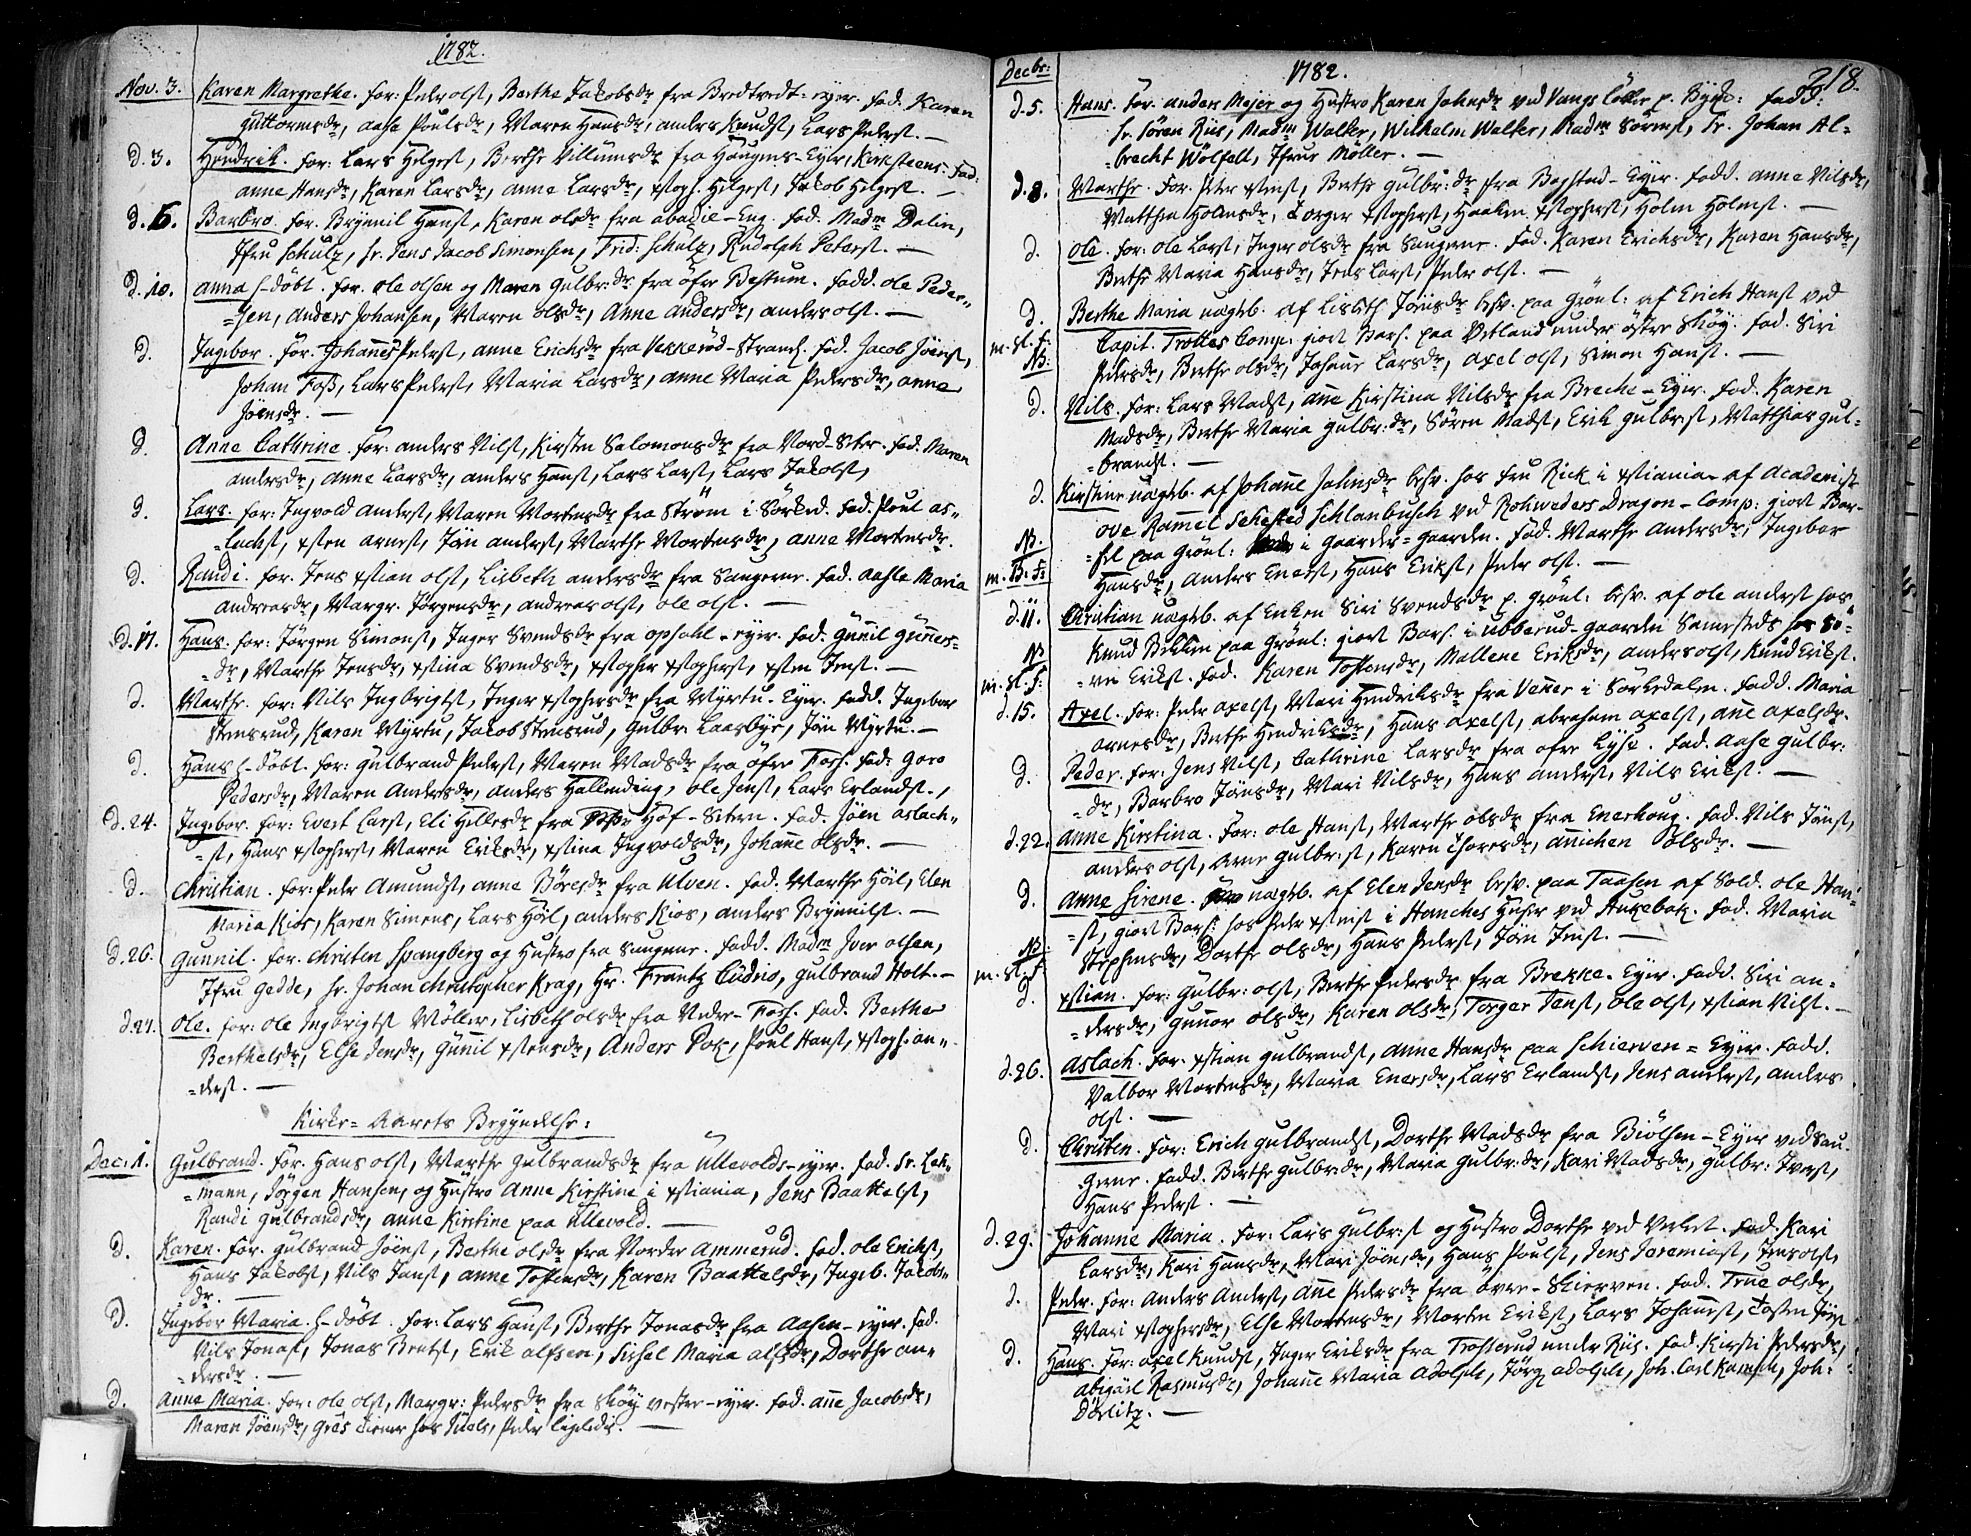 1782.
Nov. 3. Karen Margrethe. for: Peder olst, Berthe Jakobsdr fra Bredtvedt-eyer. fad. Karen
Guttormsdr, Aase Poulsdr, Maren Hansdr, anders Knudst, Lars Pederst. —
d. 3. Hendrik. for: Lars Helgest, Berthe Villumsdr fra Haugens-Eyer, Kirsteens. fad:
anne Hansdr, Karen Larsdr, anne Larsdr, xstoph. Helgest, Jakob Helgest. —
d. 6. Barbro. for. Brynnil Hanst, Karen olsdr fra abadie-Eng. fad. Madm Dalin,
Jfru Schulz, Sr. Jens Jacob Simonsen, Frid: Schulz, Rudolph Peterst. —
d. 10. anna h-döbt. for. ole olsen og Maren Gulbr:dr fra öfre Bestum. fadd. ole Peder-
=sen, Anders Johansen, Maren olsdr, Anne andersdr, anders olst. —
d. Ingebor. for. Johannes Pederst, anne Erichsdr fra Vekkeröd-Strand. fad. Jacob Joenst,
Johan Foss, Lars Pederst, Maria Larsdr, anne Maria Pedersdr, anne
Joensdr. —
d. Anne Cathrine. for: anders Nilst, Kirsten Salomonsdr fra Nord-Seter. fad. Maren
andersdr, anne Larsdr, anders Hanst, Lars Larst, Lars Jakobst,
d. Lars. for: Ingvold Anderst, Maren Mortensdr fra Ström i Sörked. fad. Poul as-
=lachst, xsten arnest, Jön anderst, Marthe Mortensdr, anne Mortensdr.
d. Randi. for. Jens xstian olst, Lisbeth andersdr fra Saugerne. fad. Aasle Maria
andreasdr, Margr. Jörgensdr, andreas olst, ole olst. —
d. 17. Hans. for: Jörgen Simonst, Inger Svendsdr fra opsahl-eyer. fad. Gunnil Gunners-
=dr, Marthe Jensdr, xstina Svendsdr, xstopher xstopherst, xsten Jenst. —
d. Marthe. for: Nils Ingbrigtst, Inger xstophersdr fra Myrtu. Eyer. fadd. Ingebor
Stensrud, Karen Myrtu, Jacob Stensrud, Gulbr. Laasbye, Jön Myrtu. —
d. Hans h-döbt. for: Gulbrand Pederst, Maren Madsdr fra öfre Foss. fad: Goro
Pedersdr, Maren Andersdr, anders Hallending, ole Jenst, Lars Erlandst. —
d. 24. Ingebor. for: Evert Larst, Eli Hellesdr fra Hof-Setern. fad. Jöen aslach-
=st, Hans xstopherst, Maren Eriksdr, xstina Ingvoldsdr, Johanne olsdr. —
d. Christian. for: Peder Amundst, anne Böresdr fra Ulven. fad. Marthe Höil, Elen
Maria Kios, Karen Simens, Lars Höil, anders Kios, anders Brynnilst. —
d. 26. Gunnil. for. Christen Spangberg og Hustro fra Saugerne. fadd. Madm Iver olsen,
Jfru Gedde, Sr. Johan Christopher Krag, Hr. Frantz Cudrio, Gulbrand Holt. —
d. 27. Ole. for: ole Ingbrigtst Möller, Lisbeth olsdr fra Nedre-Foss. fad. Berthe
Berthelsdr, Else Jensdr, Gunil xstensdr, Anders Pok, Poul Hanst, xstoph. an-
=derst. —
Kirke=Aarets Begyndelse:
Dec: 1. Gulbrand. for. Hans olst, Marthe Gulbrandsdr fra Ullevolds-eyer. fad. Sr. Leh-
=mann, Jörgen Hansen, og Hustro Anne Kirstine i xstiania, Jens Baattelst,
Randi Gulbrandsdr, anne Kirstine paa Ullevold. —
d. Karen. for. Gulbrand Jöenst, Berthe olsdr fra Nordre Ammerud. fad. ole Erichst,
Hans Jakobst, Nils Janst, anne Tostensdr, Karen Baattelsdr, Ingeb. Jacobs-
dr. —
d. Ingebor Maria. h-döbt. for: Lars Hanst, Berthe Jonasdr fra Aasen-eyer. fad.
Nils Jonast, Jonas Berntst, Erik alfsen, Sichel Maria alfsdr, Dorthe an-
=dersdr. —
d. Anne Maria. for: ole olst, Margr: Pedersdr fra Sköy vestre-eyer. fad. anne Jacobsdr,
Maren Jöensdr, Peder ligeledis. —
Decbr:
1782.
218.
d. 5. Hans. for. anders Mejer og Hustro Karen Johnsdr ved Vangs Lökke p. Byeks: fadd:
Sr. Sören Riis, Madm Walker, Wilhelm Walker, Madm Sörenst, Sr. Johan Al-
=brecht Wölfelt, Jfrue Möller. —
d. 8. Marthe. for. Peter xstenst, Berthe Gulbr:dr fra Bogstad-Eyer. fadd. anne Nilsdr,
Matthia Holmsdr, Torger xstopherst, Haaken xstopherst, Holm Holmst. —
d. Ole. for: ole Larst, Inger olsdr fra Saugerne. fad. Karen Erichsdr, Karen Hansdr,
Berthe Maria Hansdr, Jens Larst, Peder olst. —
d. Berthe Maria uægteb. af Lisbeth Jönsdr besv. paa Grönl: af Erich Hanst ved
m. St. F: Capit. Trolles Comp: giort Bars. paa Vetland under östre Skøy. fad. Siri
NB: Pedersdr, Berthe olsdr, Johanne Larsdr, axel olst, Simon Hanst. —
d. Nils. for: Lars Madst, anne Kirstina Nilsdr fra Breche-Eyer. fad. Karen
Madsdr, Berthe Maria Gulbr:dr, Sören Madst, Erik Gulbr:st, Matthias Gul-
=brandst. —
d. Kirstine uægteb. af Johanne Johnsdr besv. hos fru Rick i xstiania af Academist
ove Ramel Sehested Schlanbusch ved Rohweders Dragon-Comp: giort Bar-
NB. =sel paa Grönl: i Gaarder=gaarden. fad. Marthe Andersdr, Ingebor
m. B. F: Hansdr, Anders Enerst, Hans Erikst, Peder olst. —
d. 11. Christian uægteb. af Enken Siri Svendsdr p. Grönl: besv. af ole anderst hos
Knud Bekken paa Grönl: giort Bars. i Ubberud-gaarden Samesteds
NB =ver Erikst. fad. Karen Tostensdr, Mallene Eriksdr, anders olst, Knud Erikst.
m. St. F:
d. 15. Axel. for: Peder axelst, Mari Hendriksdr fra Venner i Sörkedalen. fadd. Maria
arnesdr, Berthe Hendriksdr, Hans axelst, abraham axelst, anne axelsdr.
d. Peder. for: Jens Nilst, Cathrine Larsdr fra öfre Lyse. fad. Aase Gulbr:
=dr, Barbro Jönsdr, Mari Nilsdr, Hans anderst, Nils Erikst. —
d. 22. Anne Kirstina. for: ole Hanst, Marthe olsdr fra Enerhoug. fad. Nils Jönst,
anders olst, arne Gulbr:st, Karen Thoresdr, annichen Olsdr. —
d. Anne Sirene. uægteb. af Elen Jensdr besv. paa Taasen af Sold. ole Han-
=st, giort Bars: hos Peder xstenst i Hanches Huser ved Ankebak. fad. Maria
NB: Stephensdr, Dorthe olsdr, Hans Pederst, Jön Jenst. —
m. St. F.
d. xstian. for: Gulbr: olst, Berthe Pedersdr fra Brekke-Eyer. fadd. Siri an-
=dersdr, Gunnor olsdr, Karen olsdr, Torger Jenst, ole olst, xstian Nilst. —
d. 26. Aslach. for. xstian Gulbrandst, anne Hansdr paa Schierven=Eyer. fadd.
Valbor Mortensdr, Maria Enersdr, Lars Erlandst, Jens anderst, anders
olst. —
d. Christen. for: Erich Gulbrandst, Dorthe Madsdr fra Biölsen-Eyer ved Sau-
gerne. fadd. Berthe Gulbr:dr, Maria Gulbr:dr, Kari Madsdr, Gulbr: Iverst,
Hans Pederst. —
d. 29. Johanne Maria. for: Lars Gulbr:st og Hustro Dorthe ved Verket. fad. Kari
Larsdr, Kari Hansdr, Mari Jöensdr, Hans Poulst, Jens Jeremiast, Jens olst,
d. Peder. for: Anders Anderst, anne Pedersdr fra övre-Skierven. fad. True olsdr,
Mari xstophersdr, Else Mortensdr, Morten Erikst, Lars Johannest, Tosten
d. Hans. for: axel Knudst, Inger Eriksdr fra Trosterud under Riis. fad. Kirsti Pedersdr,
Abigael Rasmusdr, Johanne Maria Adolphs, Jörg adolphs, Joh. Carl, Joh:
Dörlitz. —